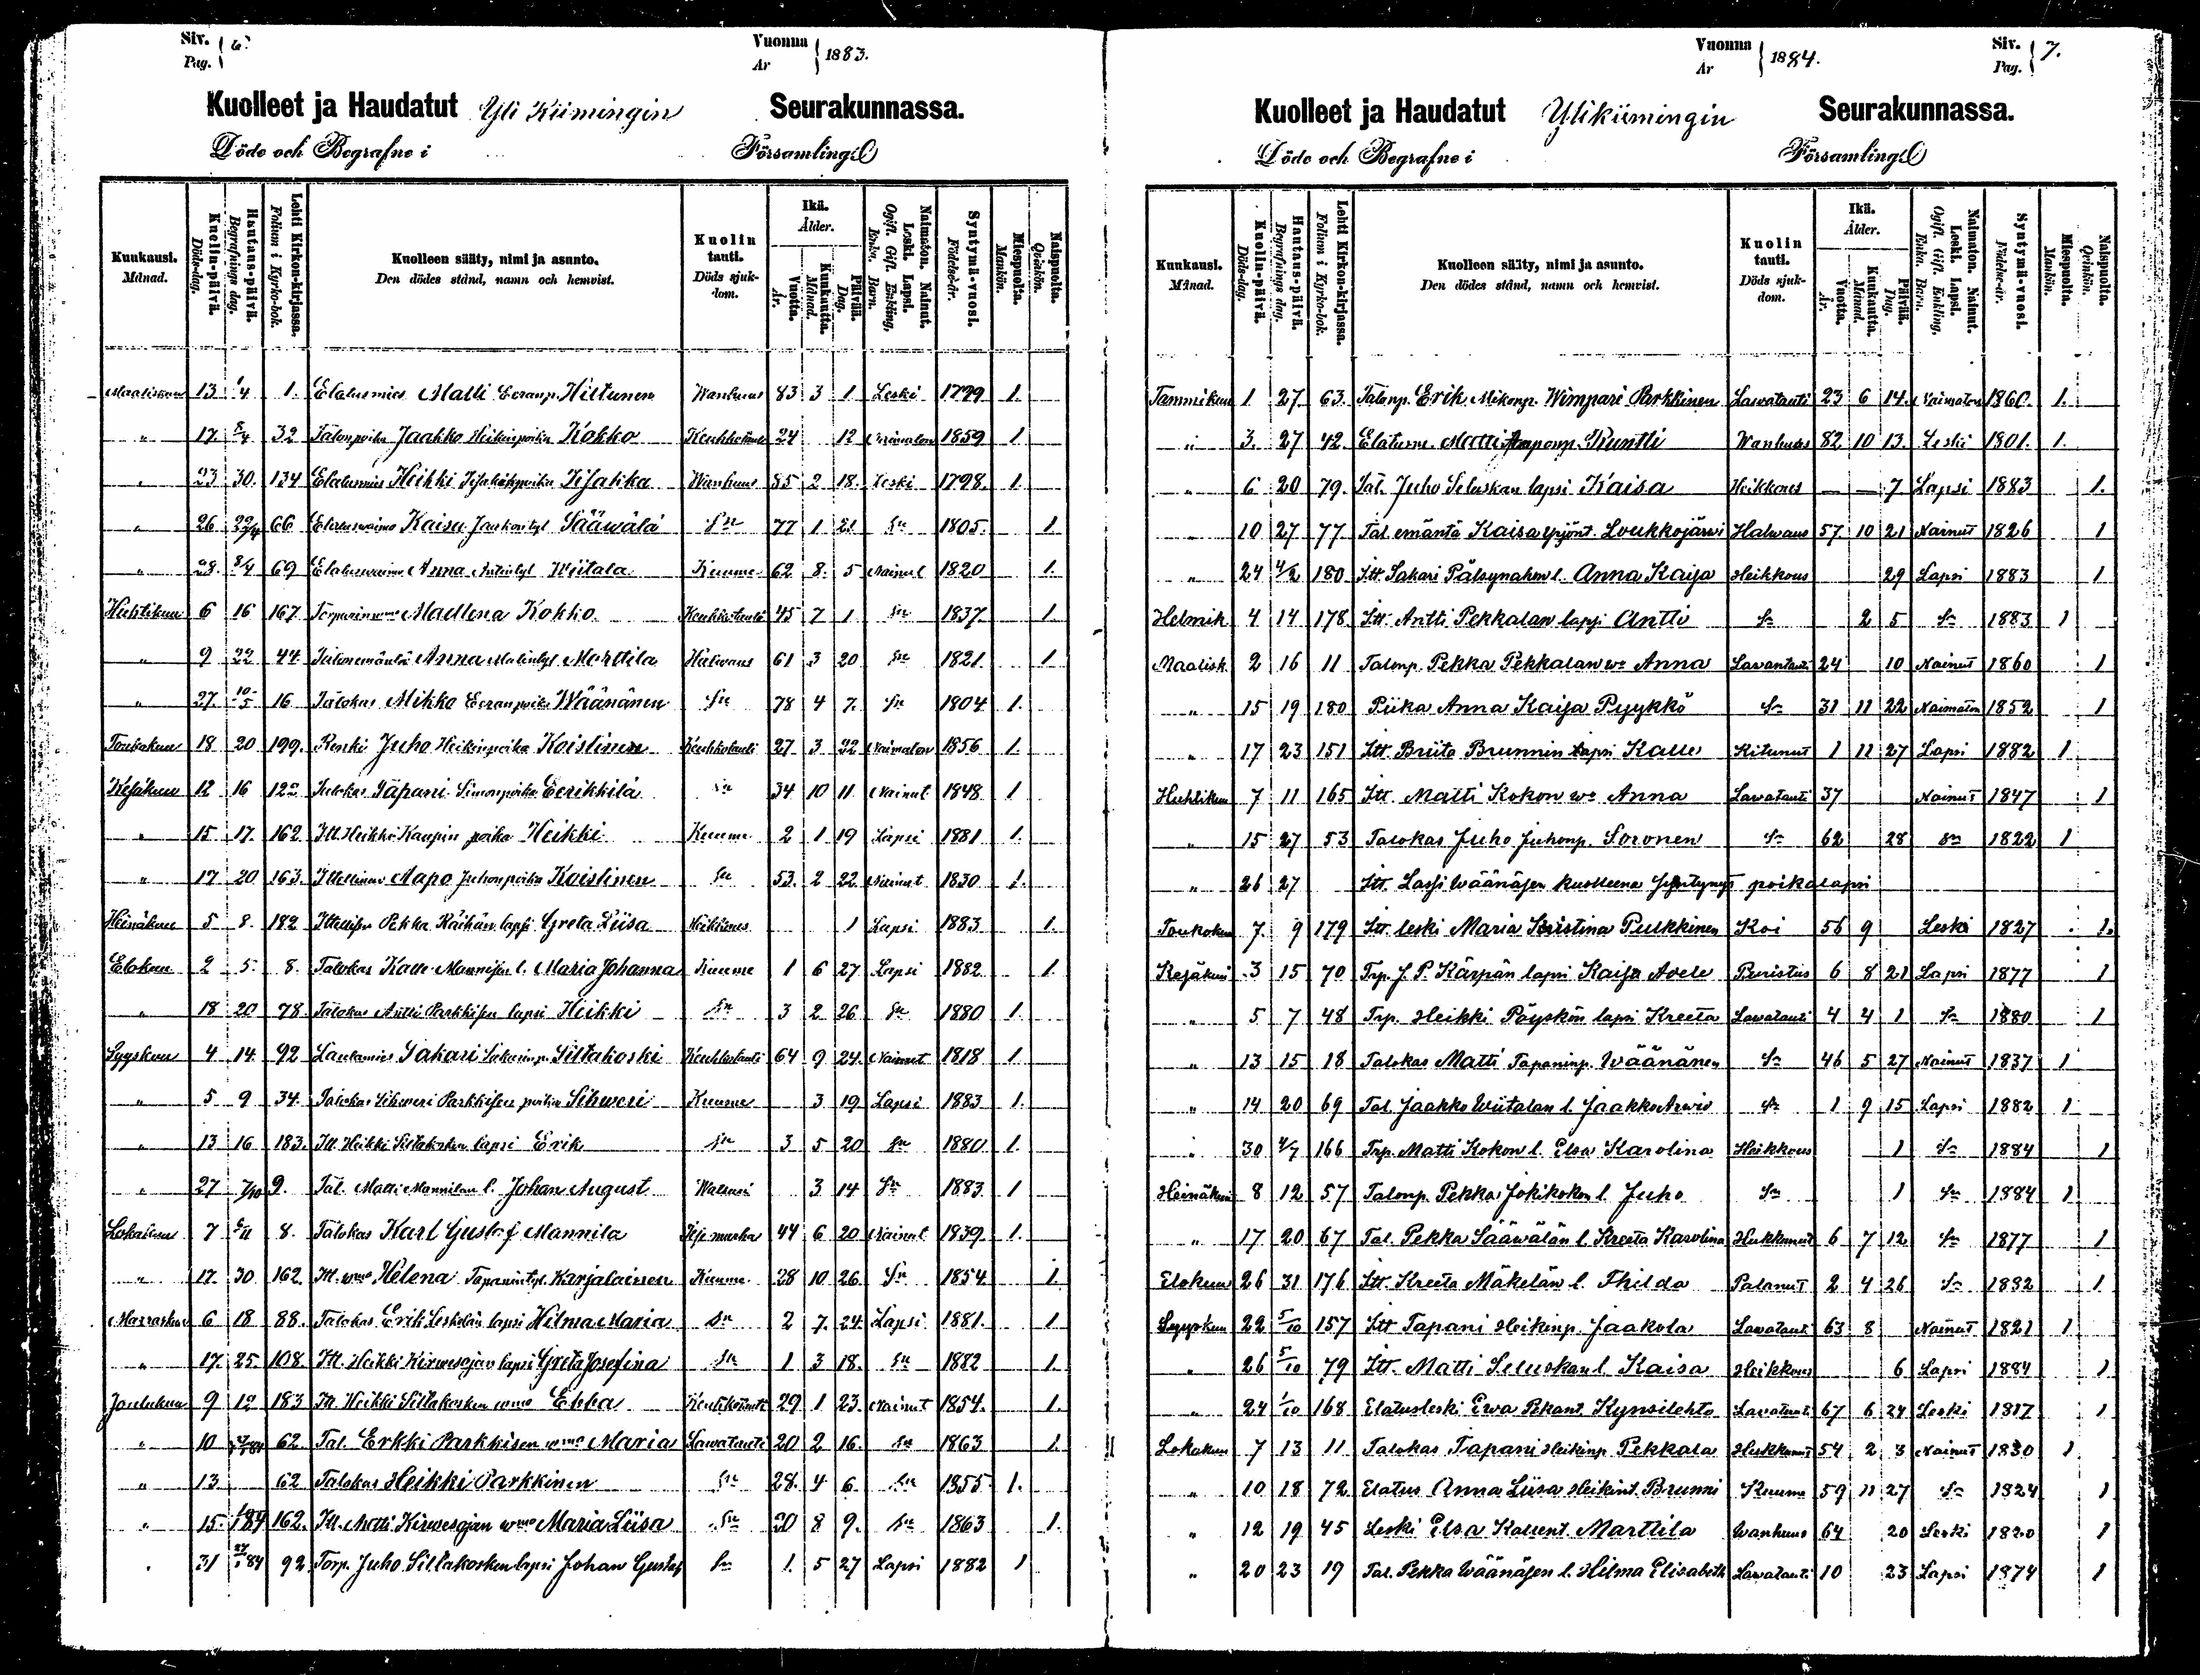 Siv. Pag. 6. Vuonna År 1883.
Kuolleet ja Haudatut Yli Kiimingin Seurakunnassa.
Döde och Begrafne i Församling.
Kuukausi. Månad. Kuolin-päivä. Döds-dag. Hautaus-päivä. Begrafnings dag. Lehti Kirkon-kirjassa. Folium i Kyrko-bok. Kuolleen sääty, nimi ja asunto. Den dödes stånd, namn och hemvist. Kuolin tauti. Döds sjuk-dom. Ikä. Ålder. Vuotta. År. Kuukautta. Månad. Päivää. Dag. Naimaton. Nainut. Leski. Lapsi. Ogift. Gift. Enkling. Enka. Barn. Syntymä-vuosi. Födelse-år. Miespuolta. Mankön. Naispuolta. Qvinkön.
Maaliskuu 13 1/4 1. Elatusmies Matti Eeranp. Hiltunen Wanhuus 83 3 1 Leski 1799 1.
" 17. 8/4 32 Talonpoika Jaakko Heikinpoika Kokko Keuhkotauti 24 12 Naimaton 1859 1
" 23 30. 134 Elatusmies Heikki Wanhuus 85 2 18. Leski 1798. 1.
" 26 22/4 66 Elatuswaimo Kaisa Jaakontyt. Sääwälä Sn 77 1 21. Sn 1805. 1.
" 28. 8/4 69 Elatuswaimo Anna Antintyt. Wiitala Kuume 62 8. 5 Nainut 1820 1.
Huhtikuu 6 16 167. Torparin wmo Madlena Kokko. Keuhkotauti 45 7 1 Sn 1837. 1.
" 9 22 44. Talonemäntä Anna Matintyt. Marttila Halwaus 61 3 20 Sn 1821. 1
" 27. 10/5 16 Talokas Mikko Eeranpoika Wäänänen Sn 78 4 7. Sn 1804 1.
Toukokuu 18 20 199. Renki Juho Heikinpoika Koistinen Keuhkotauti 27 3 22 Naimaton 1856 1.
Kesäkuu 12 16 122 Talokas Tapani Simonpoika Eerikkilä Sn 34 10 11 Nainut 1848 1
" 15 17. 162 Itl. Heikki Kaupin poika Heikki Kuume 2 1 19 Lapsi 1881 1.
" 17 20 163. Itsellinen Aapo Juhonpoika Koistinen Sn 53. 2 22 Nainut 1830 1.
Heinäkuu 5 8. 182 Itsellisen Pekka Räihän lapsi Greta Liisa Heikkous 1 Lapsi 1883 1.
Elokuu 2 5. 8. Talokas Kalle Mannisen l. Maria Johanna Kuume 1 6 27 Lapsi 1882 1.
" 18 20 78. Talokas Antti Parkkisen lapsi Heikki Sn 3 2 26 Sn 1880 1.
Syyskuu 4 14. 92 Lautamies Sakari Sakarinp. Siltakoski Keuhkotauti 64 9 24. Nainut 1818 1.
" 5 9 34. Talokas Sihweri Parkkisen poika Sihweri Kuume 3 19 Lapsi 1883 1.
" 13 16 183. Itl. Heikki Siltakosken lapsi Erik Sn 3 5 20 Sn 1880 1.
" 27 7/10 9. Tal. Matti Mannilan l. Johan August 3 14 Sn 1883 1
Lokakuu 7 8. Talokas Karl Gustaf Mannila Itsemurha 44 6 20 Nainut 1839. 1.
" 17. 30 162 Itl. wmo Helena Tapanintyt. Karjalainen Kuume 28 10 26. Sn 1854. 1.
Marraskuu 6 18 88. Talokas Erik Leskelän lapsi Hilma Maria Sn 2 7 24. Lapsi 1881. 1
" 17. 25. 108. Itl. Heikki Kirwesojan lapsi Greta Josefina Sn 1 3 18. Sn 1882 1.
Joulukuu 9 12 183 Itl. Heikki Siltakosken wmo Ebba Keuhkotauti 29 1 23. Nainut 1854. 1.
" 10 62 Tal. Erkki Parkkisen wmo Maria Lawatauti 20 2 16. Sn 1863 1.
" 13 62 Talokas Heikki Parkkinen Sn 28. 4 6 Sn 1855. 1.
" 15. 162. Itl. Antti Kirwesojan wmo Maria Liisa Sn 20 8 9. Sn 1863 1.
" 31 92 Torp. Juho Siltakosken lapsi Johan Gustaf Sn 1. 5 27 Lapsi 1882 1
Vuonna År 1884. Siv. Pag. 7.
Kuolleet ja Haudatut Ylikiimingin Seurakunnassa.
Döde och Begrafne i Församling.
Kuukausi. Månad. Kuolin-päivä. Döds-dag. Hautaus-päivä. Begrafnings dag. Lehti Kirkon-kirjassa. Folium i Kyrko-bok. Kuolleen sääty, nimi ja asunto. Den dödes stånd, namn och hemvist. Kuolin tauti. Döds sjuk-dom. Ikä. Ålder. Vuotta. År. Kuukautta. Månad. Päivää. Dag. Naimaton. Nainut. Leski. Lapsi. Ogift. Gift. Enkling. Enka. Barn. Syntymä-vuosi. Födelse-år. Miespuolta. Mankön. Naispuolta. Qvinkön.
Tammikuu 1 27 63. Talonp. Erik Mikonp. Wimpari Parkkinen Lawatauti 23 6 14. Naimaton 1860. 1.
" 3. 27 42. Matti Kuntti Wanhuus 82 10 13. Leski 1801. 1.
" 6 20 79. Tal. Juho Seluskan lapsi Kaisa Heikkous — — 7 Lapsi 1883 1.
" 10 27 77 Tal. emäntä Kaisa Yrjönt. Loukkojärwi Halwaus 57. 10 21 Nainut 1826 1
" 24 4/2 180 Itt. Sakari Pälsynahon l. Anna Kaisa Heikkous 29 Lapsi 1883 1
Helmik 4 14 178. Itt. Antti Pekkalan lapsi Antti Sn 2 5 Sn 1883 1
Maalisk. 2 16 11 Talonp. Pekka Pekkalan wo Anna Lawantauti 24 10 Nainut 1860 1
" 15 19 180 Piika Anna Kaisa Pyykkö Sn 31 11 22 Naimaton 1852 1
" 17 23 151 Itt. Briita Brunnin lapsi Kalle Kitunut 1 11 27 Lapsi 1882 1
Huhtikuu 7 11 165 Itt. Matti Kokon wo Anna Lawatauti 37 Nainut 1847 1
" 15 27 53 Talokas Juho Juhonp. Soronen Sn 62 28 Sn 1822 1
" 26 27 Itt. Lassi Wäänäsen kuolleena syntynyt poikalapsi
Toukokuu 7. 9 179 Itt. leski Maria Kristina Pulkkinen Koi 56 9 Leski 1827 1.
Kesäkuu 3 15 70 Trp. J. P. Kärpän lapsi Kaisa Adele Puristus 6 8 21 Lapsi 1877 1
" 5 7 48 Trp. Heikki Pöyskön lapsi Kreeta Lawatauti 4 4 1 Sn 1880 1
" 13 15 18 Talokas Matti Tapaninp. Wäänänen Sn 46 5 27 Nainut 1837 1
" 14 20 69 Tal. Jaakko Wiitalan l. Jaakko Arwid Sn 1 9 15 Lapsi 1882 1
" 30 4/7 166 Trp. Matti Kokon l. Elsa Karolina Heikkous 1 Sn 1884 1
Heinäkuu 8 12 57 Talonp. Pekka Jokikokon l. Juho Sn 1 Sn 1884 1
" 17 20 67 Tal. Pekka Sääwälän l. Kreeta Karolina Hukkunut 6 7 12 Sn 1877 1
Elokuu 26 31 176 Itt. Kreeta Mäkelän l. Thilda Palanut 2 4 26 Sn 1882 1
Syyskuu 22 5/10 157 Itt Tapani Heikinp. Jaakola Lawataut. 63 8 Nainut 1821 1
" 26 5/10 79 Itt. Matti Seluskan l. Kaisa Heikkous 6 Lapsi 1884 1
" 24 1/10 168 Elatusleski Ewa Pekant. Kynsilehto Lawataut. 67 6 24 Leski 1817 1
Lokakuu 7 13 11 Talokas Tapani Heikinp. Pekkala Hukkunut 54 2 3 Nainut 1830 1
" 10 18 72 Elatus Anna Liisa Heikint. Brunni Kuume 59 11 27 Sn 1824 1
" 12 19 45 Leski Elsa Kallent. Marttila Wanhuus 64 20 Leski 1820 1
" 20 23 19 Tal. Pekka Wäänäsen l. Hilma Elisabeth Lawatauti 10 23 Lapsi 1874 1